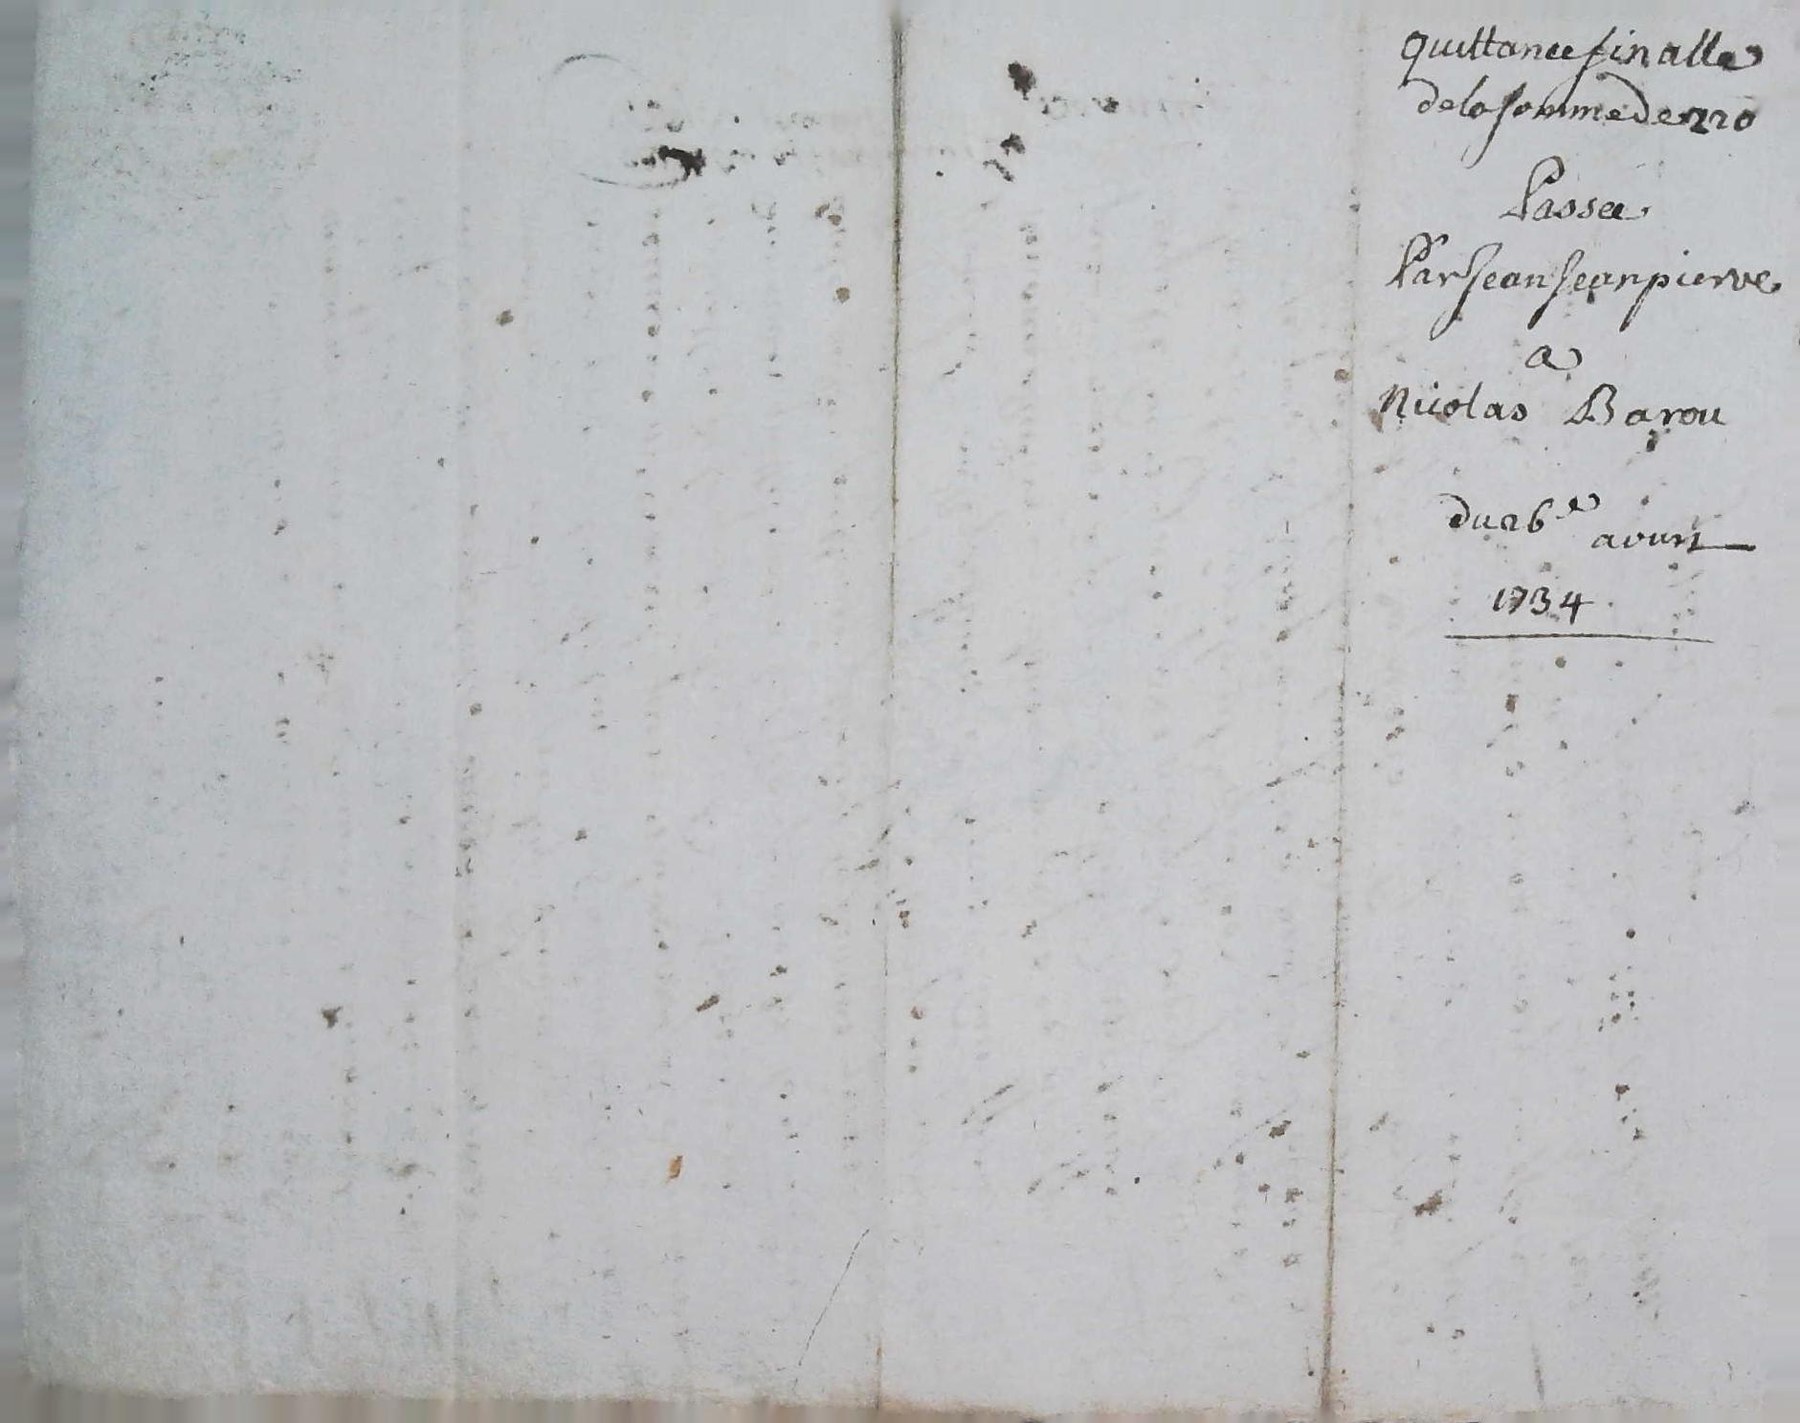 quittance finalle
de la somme de 220
Passee
Par Jean Jeanpierre
a
Nicolas Barou
du 26e
avuri
1734